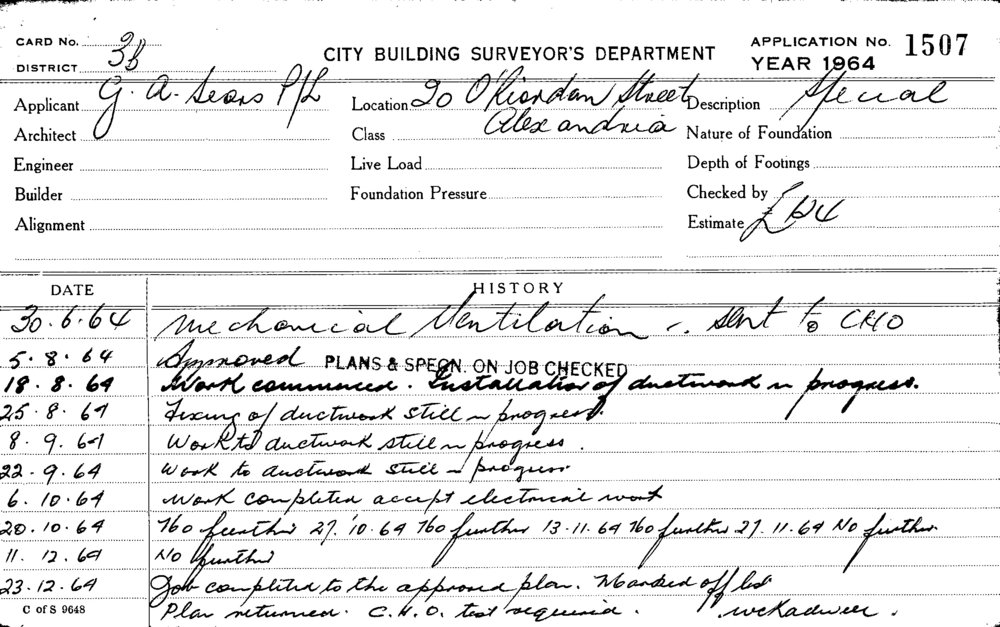 CARD No. 3b
CITY BUILDING SURVEYOR'S DEPARTMENT
APPLICATION No. 1507
DISTRICT
YEAR 1964
Applicant G. A. Sears P/L
Location 20 O'Riordan Street
Description Special
Architect
Class Alexandria
Nature of Foundation
Engineer
Live Load
Depth of Footings
Builder
Foundation Pressure
Checked by
Alignment
Estimate £
DATE
HISTORY
30.6.64 Mechanical Ventilation sent to CHO
5.8.64 Approved PLANS & SPECN. ON JOB CHECKED
18.8.64 Work commenced. Installation of ductwork in progress.
25.8.64 Fixing of ductwork still in progress.
8.9.64 Work to ductwork still in progress.
22.9.64 Work to ductwork still in progress
6.10.64 Work completed accept electrical work
20.10.64 No further 27.10.64 No further 13.11.64 No further 27.11.64 No further
11.12.64 No further
23.12.64 Job completed to the approved plan. Marked off
C of S 9648 Plan returned. C.H.O. test required.